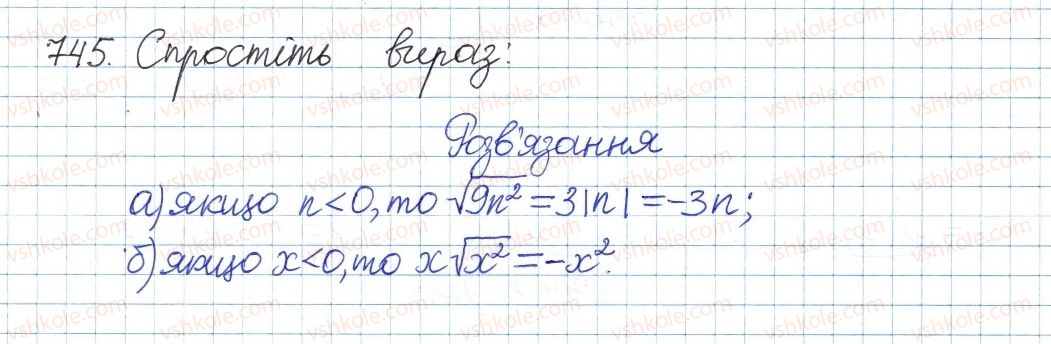 745. Спростіть вираз:
Розв'язання
а) якщо n<0, то √9n² = 3|n| = -3n;
б) якщо x<0, то x√x² = -x².